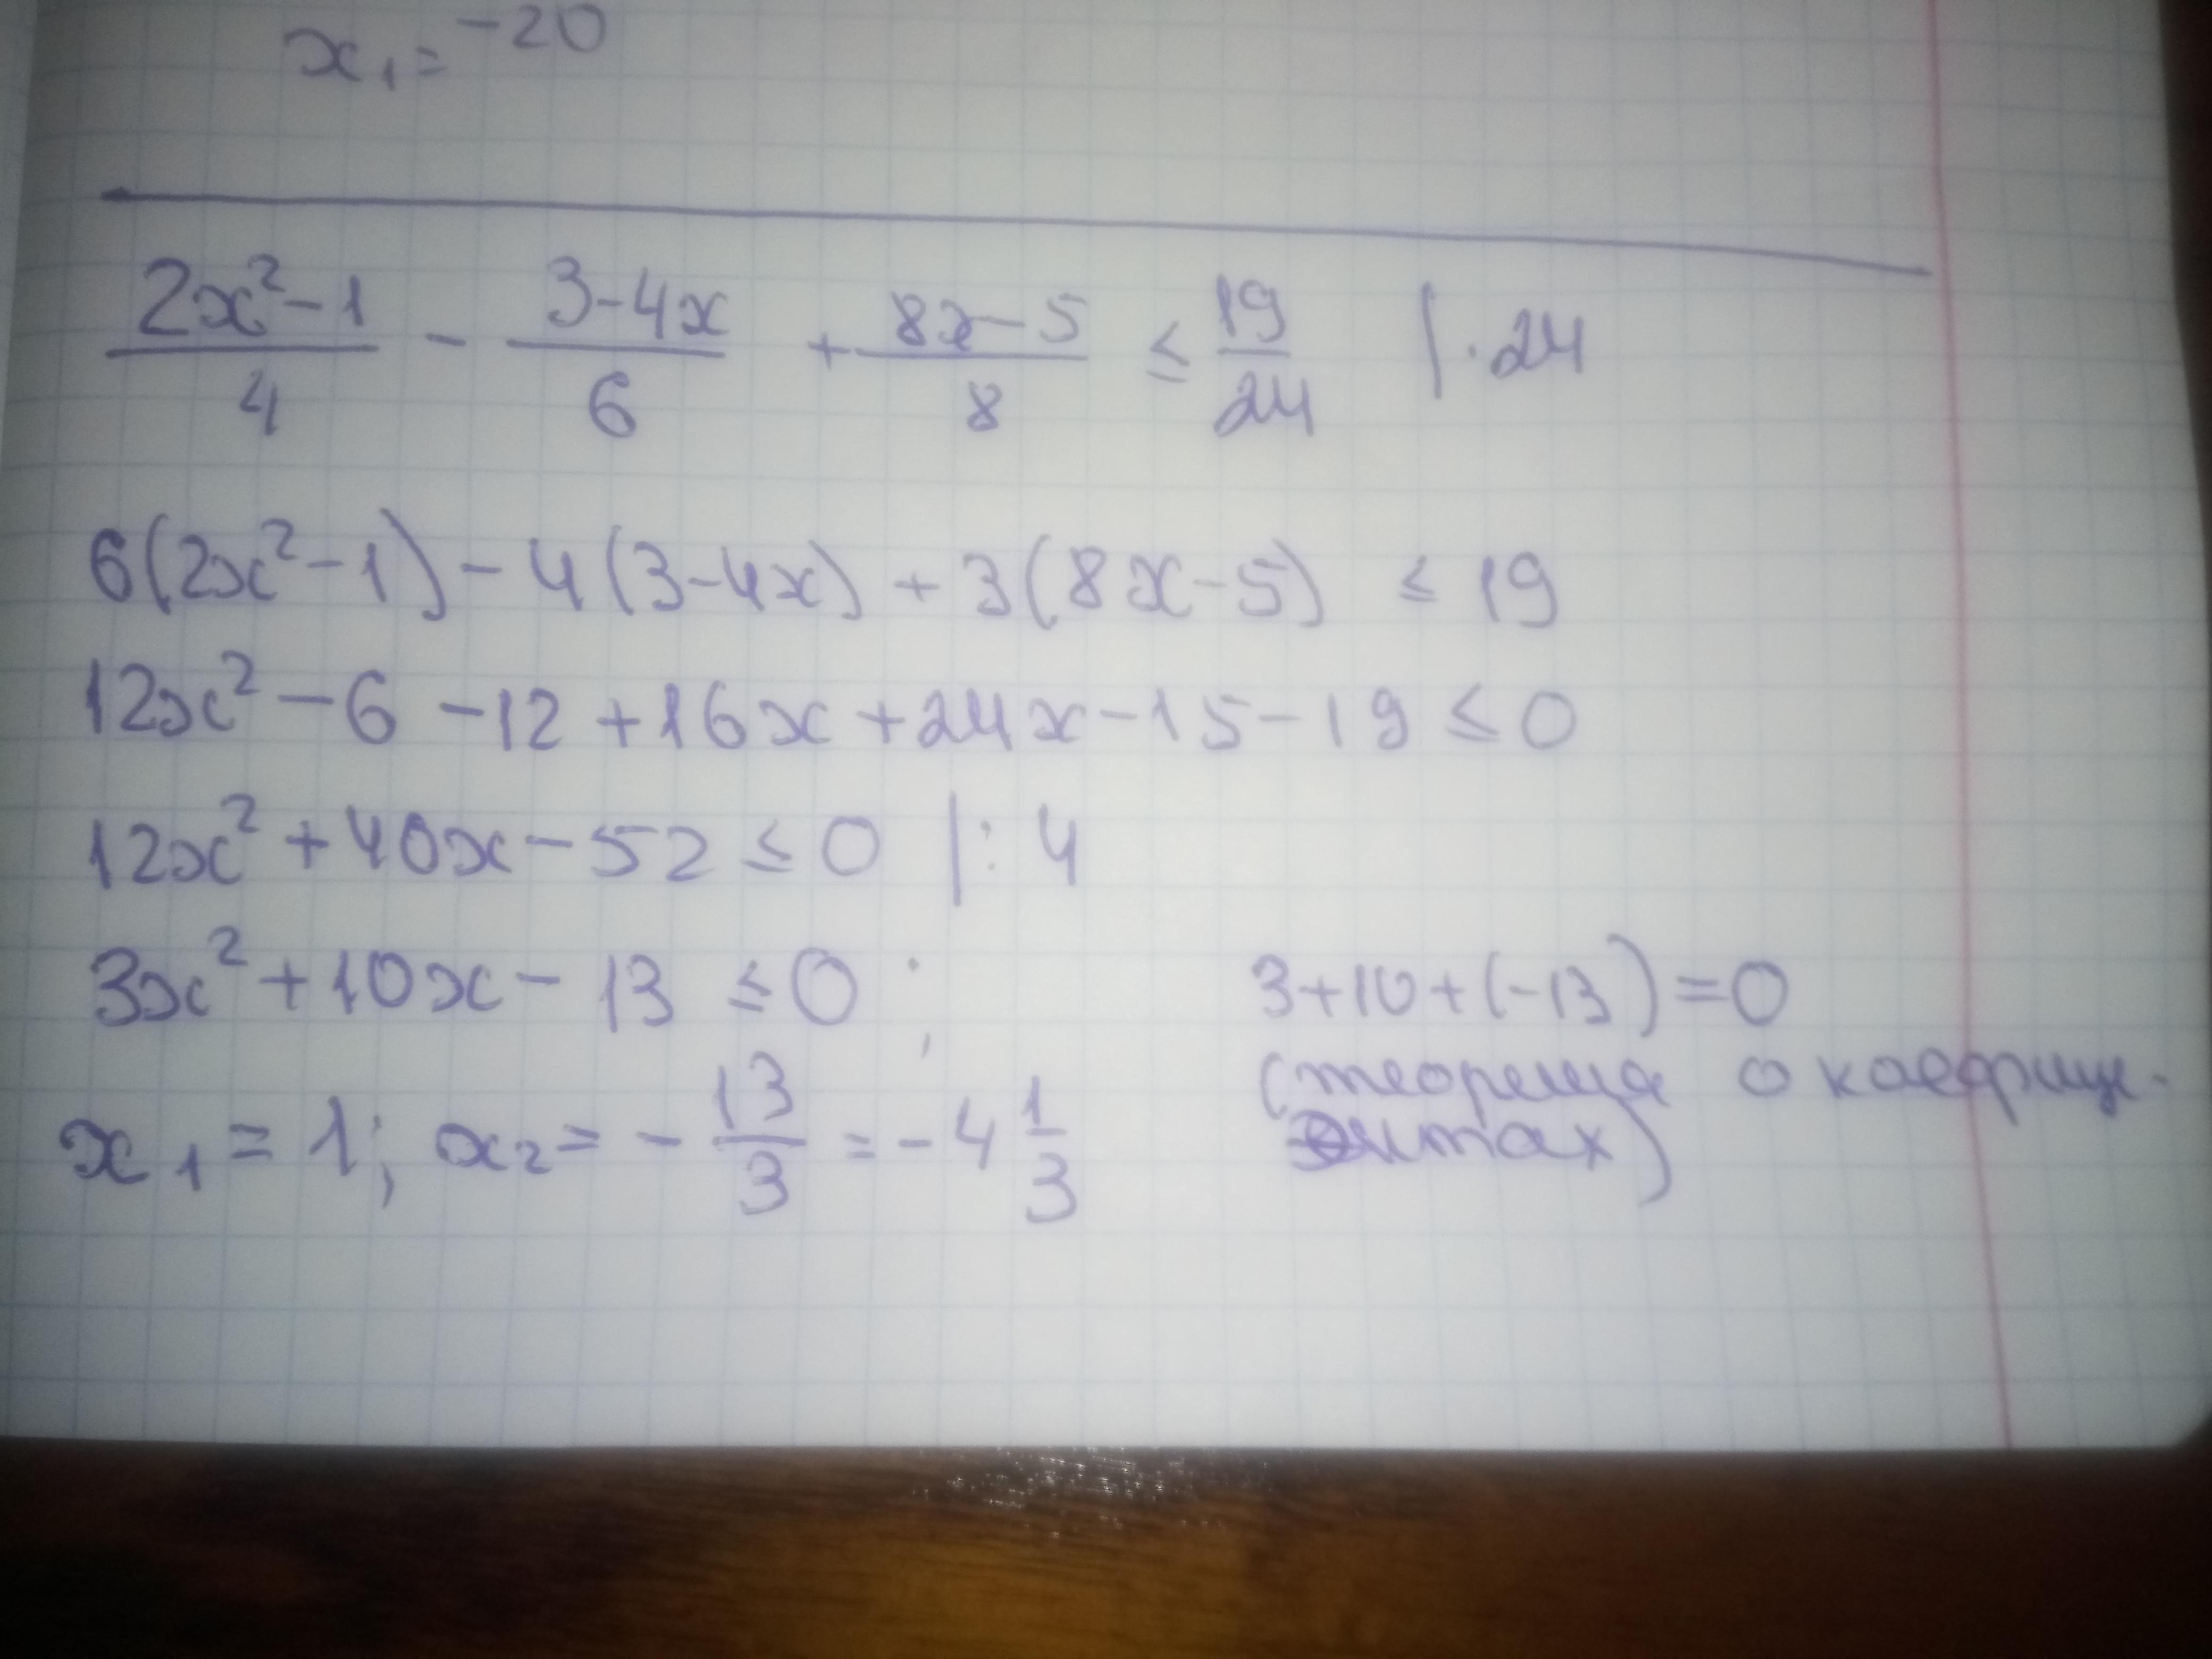 x₁ = -20
(2x² - 1)/4 - (3 - 4x)/6 + (8x - 5)/8 ≤ 19/24 | · 24
6(2x² - 1) - 4(3 - 4x) + 3(8x - 5) ≤ 19
12x² - 6 - 12 + 16x + 24x - 15 - 19 ≤ 0
12x² + 40x - 52 ≤ 0 | : 4
3x² + 10x - 13 ≤ 0 ; 3 + 10 + (-13) = 0
(теорема о коеффице-
нтах)
x₁ = 1; x₂ = - 13/3 = - 4 1/3